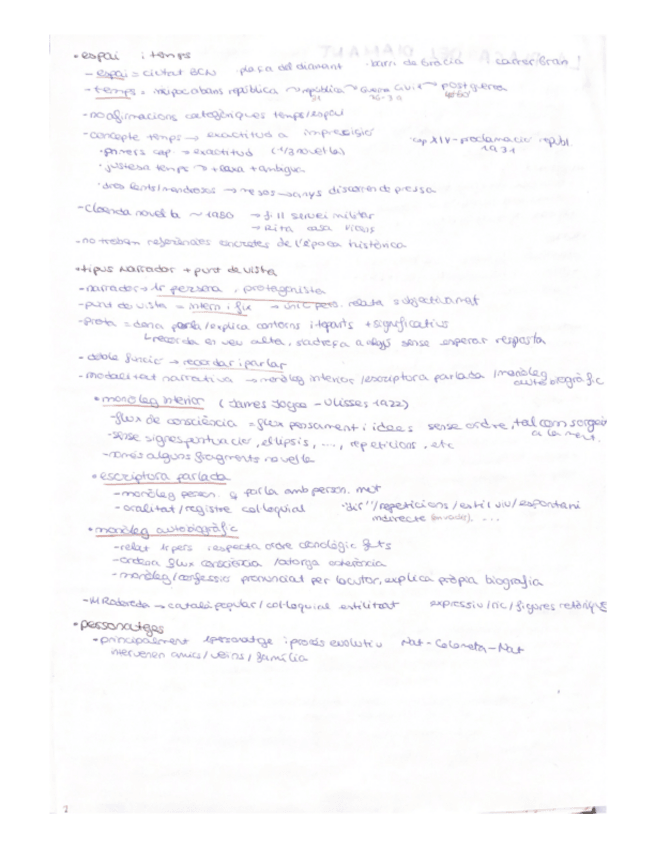 • espai i temps
- espai = ciutat BCN plaça del diamant · barri de Gràcia carrer Gran
- temps = mypoc abans república → república 31 → Guerra Civil 36-39 → postguerra 40-50
- no afirmacions categòriques temps/espai
- concepte temps → exactitud a imprecisió cap XIV - proclamació repúbl. 1931
· primers cap → exactitud (1/3 novel·la)
· justesa temps → + rara + ambigua
· dies lents/mandrosos → mesos - anys discorren depressa
- Cloenda novel·la ~ 1950 → fill servei militar
→ Rita casa Vicenç
- no trobem referències concretes de l'època històrica
• tipus narrador + punt de vista
- narrador → 1r persona, protagonista
- punt de vista = intern i fix → únic pers. relata subjectivament
- prota = dona parla/explica contorns i topants + significatius
↳ recorda en veu alta, s'adreça a algú sense esperar resposta
- doble funció → recordar i parlar
- modalitat narrativa → monòleg interior/escriptura parlada/monòleg autobiogràfic
• monòleg interior (James Joyce - Ulisses 1922)
- flux de consciència = flux pensament i idees sense ordre, tal com sorgeix a la ment.
- sense signes puntuació, el·lipsis, ..., repeticions, etc
- només alguns fragments novel·la
• escriptura parlada
- monòleg person. q parla amb person. mut
- oralitat/registre col·loquial "dir"/repeticions/estil viu/espontani indirecte ...
• monòleg autobiogràfic
- relat 1r pers i respecta ordre cronològic fets
- ordena flux consciència/atorga coherència
- monòleg/confessió pronunciat per locutor, explica pròpia biografia
- M. Rodoreda → català popular/col·loquial estilitzat expressiu/ric/figures retòriques
• personatges
• principalment 1 personatge i procés evolutiu Nat - Colometa - Nat
intervenen amics/veïns/família